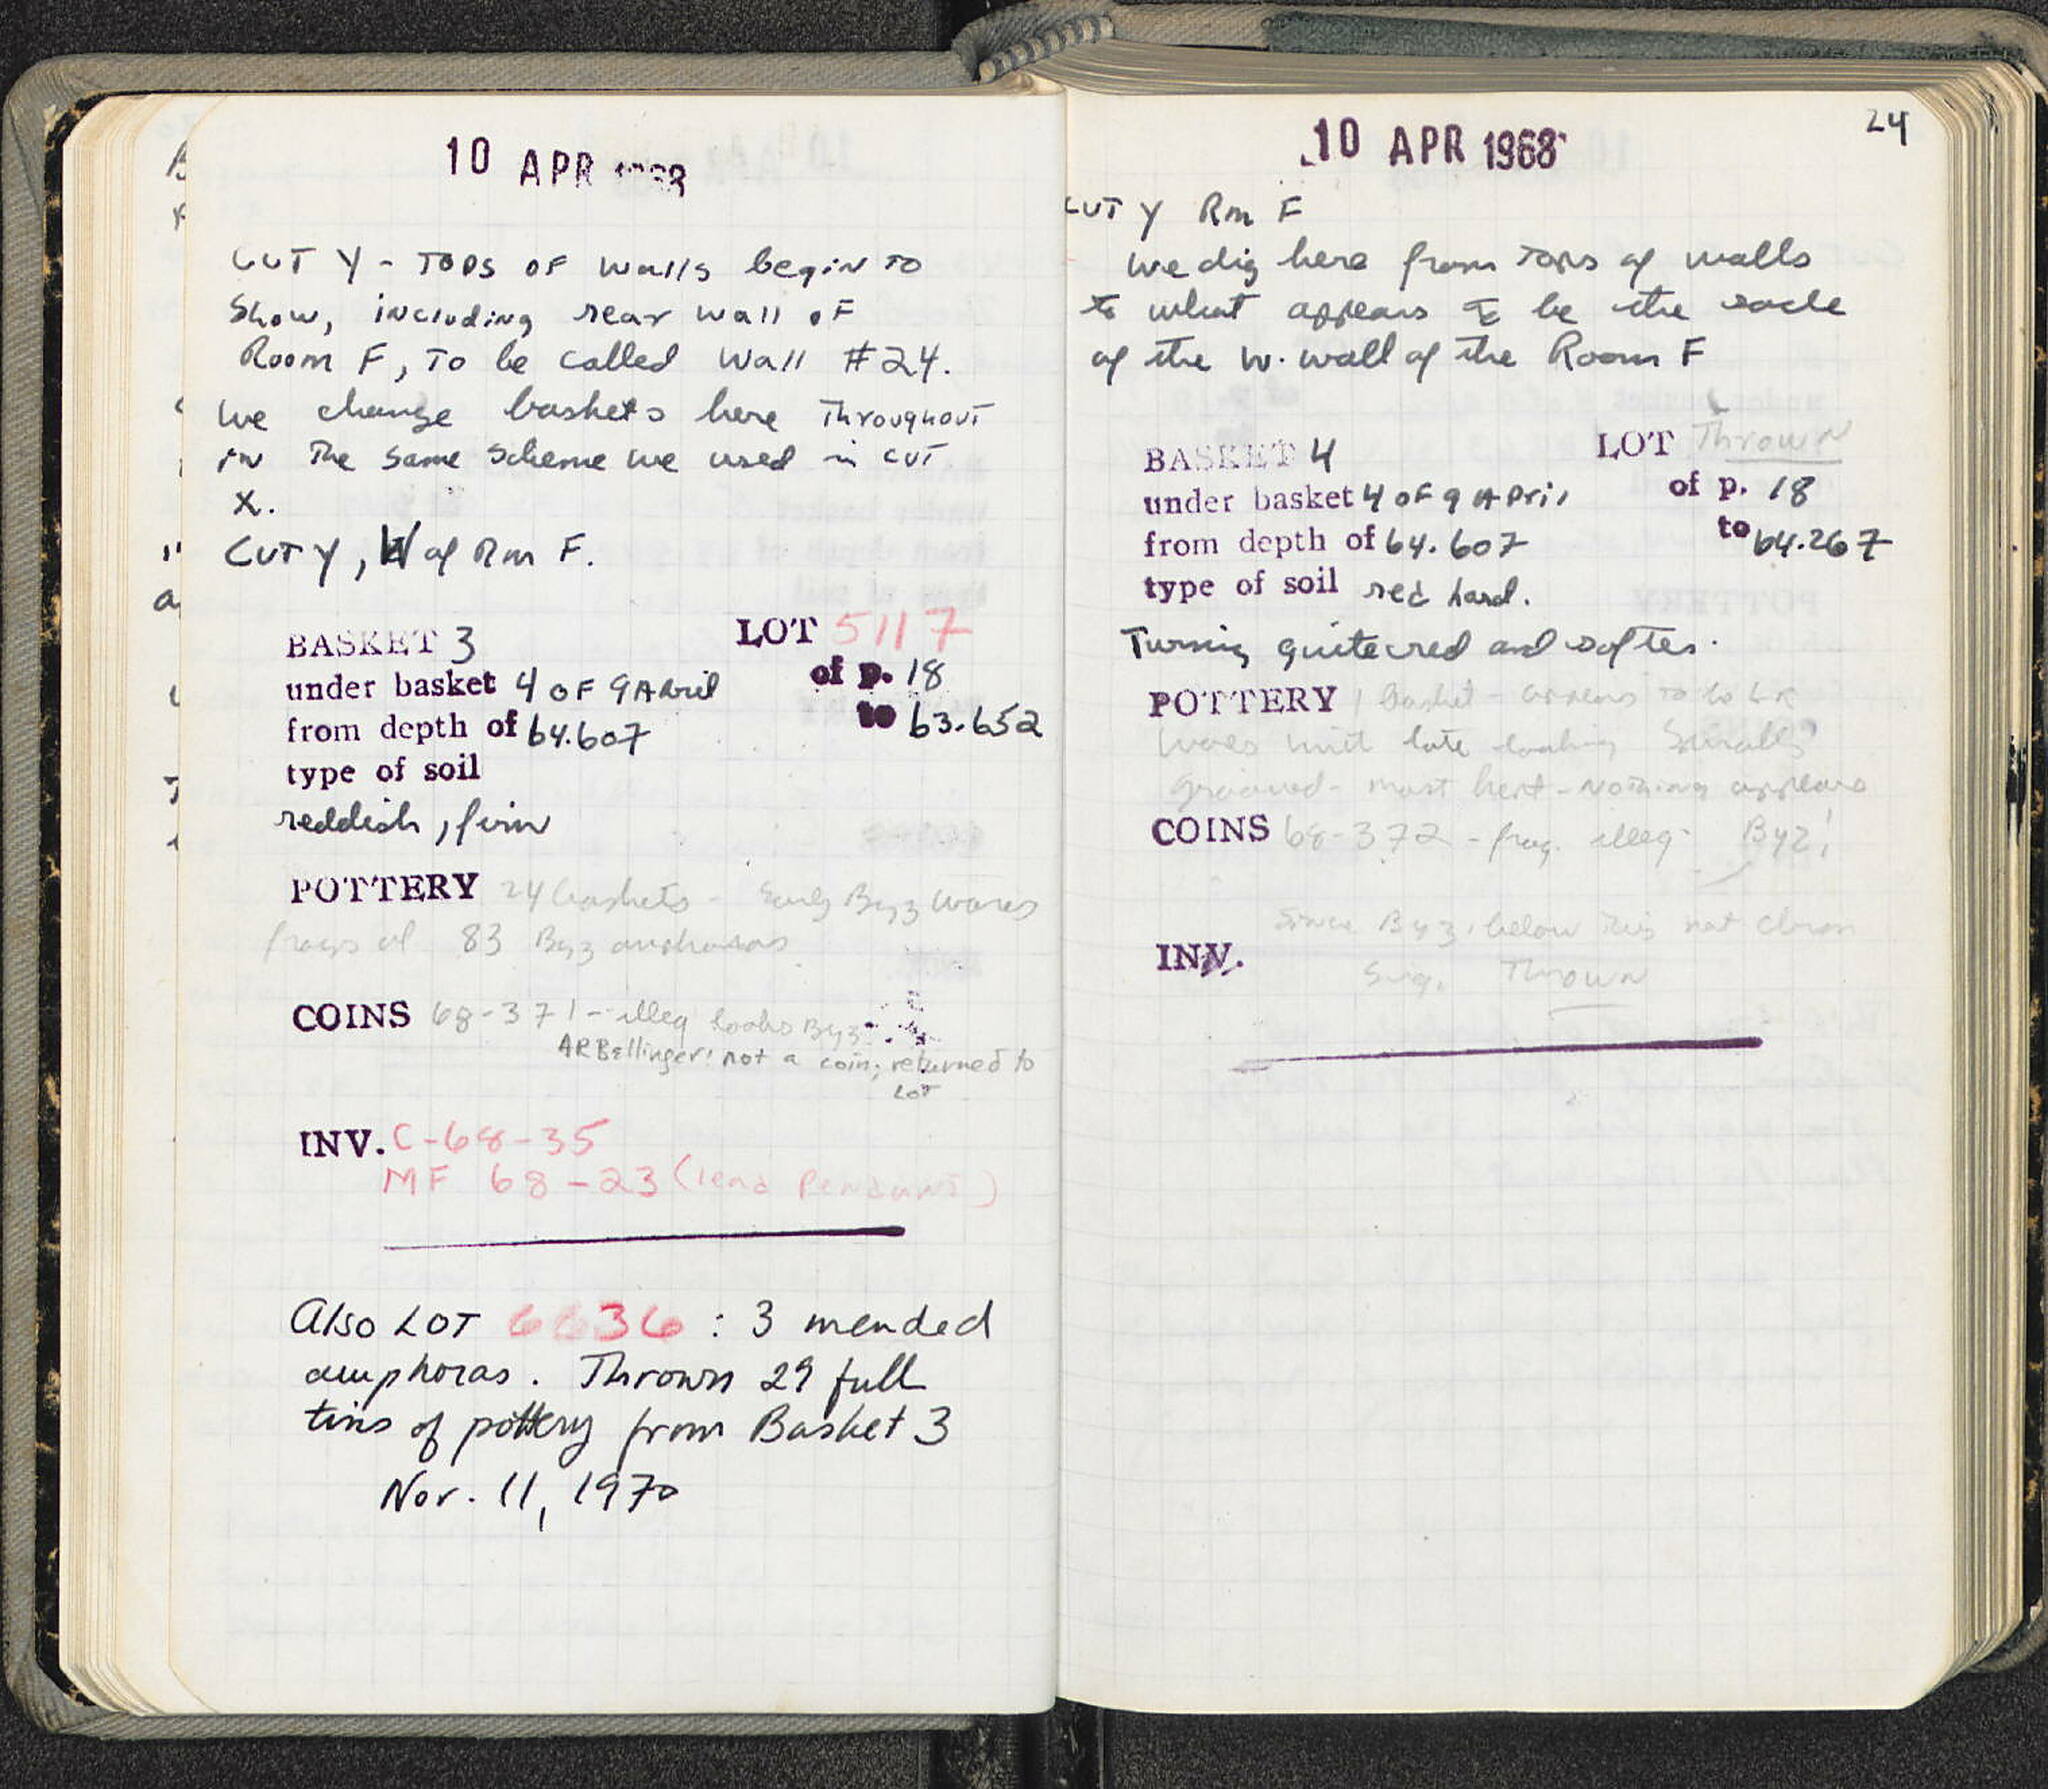 10 APR 1968
CUT Y - TOPS OF walls begin TO
Show, including rear wall OF
Room F, TO be called Wall #24.
We change baskets here Throughout
in The same scheme we used in CUT
X.
CUT Y, W of Rm F.
BASKET 3 LOT 5117
under basket 4 OF 9 April of p. 18
from depth of 64.607 to 63.652
type of soil
reddish, firm
POTTERY 24 baskets - Early Byz wares
frags of 83 Byz amphoras
COINS 68-371 - illeg looks Byz.
ARBellinger: not a coin; returned to
LOT
INV. C-68-35
MF 68-23 (lead Pendant)
Also LOT 6636 : 3 mended
amphoras. Thrown 29 full
tins of pottery from Basket 3
Nov. 11, 1970
24
10 APR 1968
CUT Y Rm F
We dig here from Tops of walls
to what appears to be the socle
of the W. wall of the Room F
BASKET 4 LOT Thrown
under basket 4 OF 9 April of p. 18
from depth of 64.607 to 64.267
type of soil red hard.
Turning quite red and softer.
POTTERY 1 basket - appears to be LR
wares with late looking
grooved - most - Nothing appears
COINS 68-372 - frag. illeg. Byz!
Since Byz. below this not chron
INV.
Sig. Thrown